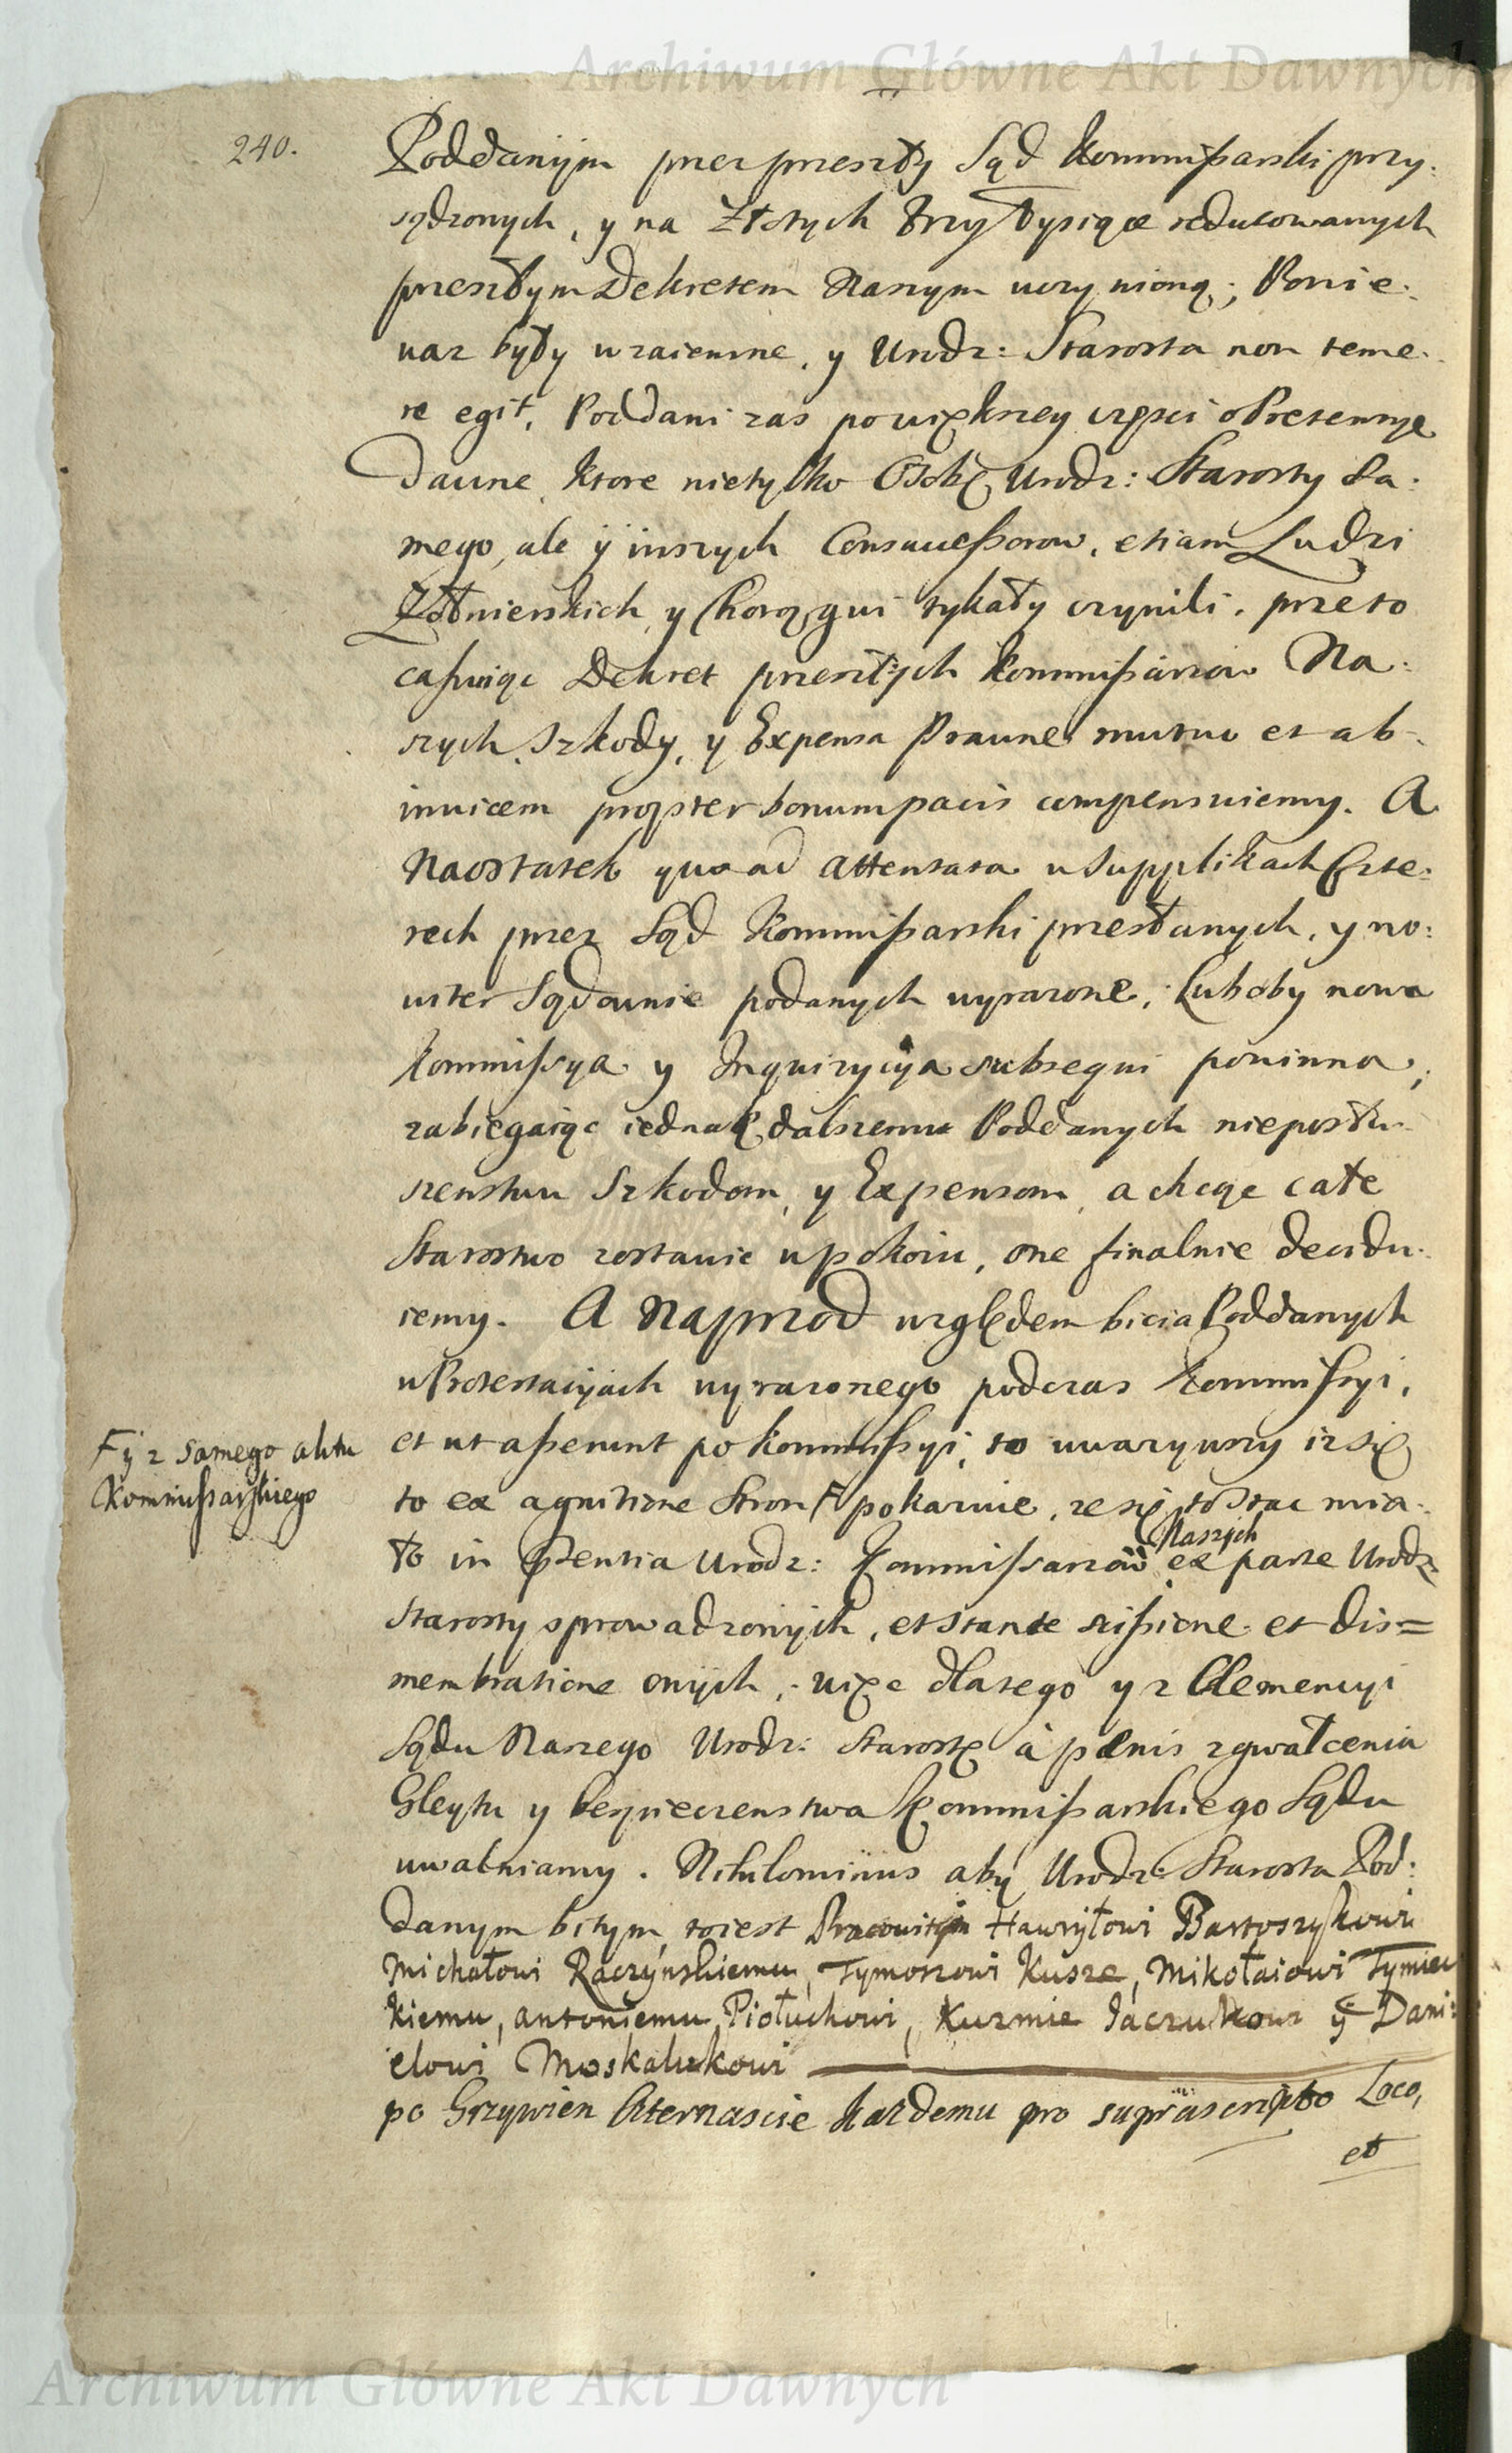 Archiwum Główne Akt Dawnych
240.
Poddanÿm przez przeszły Sąd Kommißarski przy:
sądzonych, y na Złotych Trzy Tysiące redukowanych
przeszłym Dekretem Naszym uczynioną; Ponie:
waz były wzaiemne, y Urodz: Starosta non teme:
re egit, Poddani zas po większey częsci o Pretensye
dawne, ktore nietylko Osobę Urodz: Starosty Sa:
mego, ale ÿ inszych Consuccessorow, etiam Ludzi
Żołnierskich, y Chorągwi tykały czynili, przeto
caßuiąc Dekret przeszłych Kommißarzow Na:
szych, Szkody, y Expensa Prawne mutuo et ab
inuicem propter bonum pacis compensuiemy. A
Naostatek quo ad attentata w Supplikach Czte:
rech przez Sąd Kommißarski przesłanych, y no:
uiter Sądownie podanych wyrazone, Luboby nowa
Kommissya y Inquizycÿa subsequi powinna,
zabiegaiąc iednak dalszemu Poddanych nieposłu:
szenstwu Szkodom, y Expensom, a chcąc całe
Starostwo zostawic w pokoiu, one finalnie decidu:
iemy. A Naprzod względem bicia Poddanych
w Protestacÿiach wyrazonego podczas Kommissyi,
et ut aßerunt po Kommißyi, to uwazywszy iz się
to ex agnitione Stron F pokazuie, ze się to Stac mia:
F ÿ z samego aktu
Kommissarskiego
ło in Pſentia Urodz: Kommissarzow Naszÿch ex parte Urodz:
Starosty sprowadzonÿch, et stante scißione et dis=
membratione onÿch, więc dlatego y z Clemencyi
Sądu Naszego Urodz: Starostę à pænis zgwałcenia
Gleytu y bespieczenstwa Kommißarskiego Sądu
uwalniamy. Nihilominus aby Urodz: Starosta Pod:
danym bitym, toiest Pracowitÿm Hawryłowi Bartoszykowi
Michałowi Raczÿnskiemu, Tymoszowi Kusze, Mikołaiowi Tymiec
kiemu, antoniemu Piotuchowi, Kuzmie Jaczukowi ÿ Dani:
elowi Moskalukowi
po Grzywien Czternascie kazdemu pro suprascripto Loco,
et
Archiwum Główne Akt Dawnych